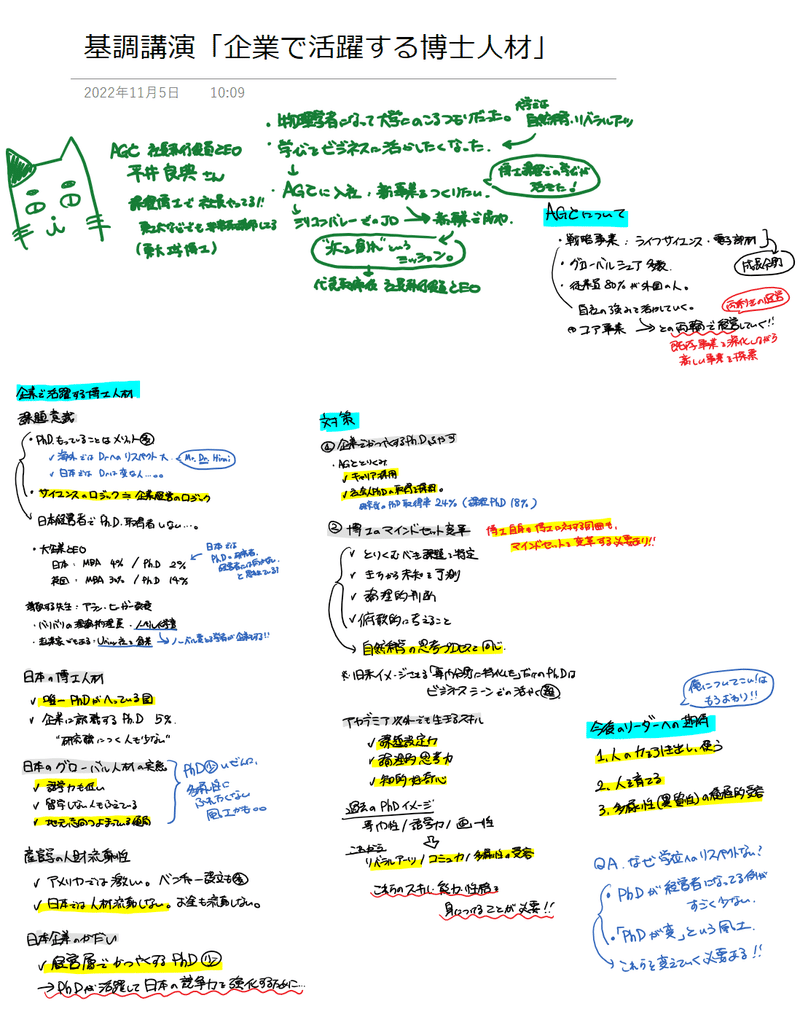 基調講演「企業で活躍する博士人材」
2022年11月5日 10:09
AGC 社長執行役員CEO
平井良典さん
課程博士で社長やってる!!
(東大 工学博士)
・物理学者になって大学にのこるつもりだった。
大学では
自然科学・リベラルアーツ
・学びをビジネスに活かしたくなった。
博士課程での学びが
活きた!
・AGCに入社・新事業をつくりたい。
シリコンバレーでのJD → 新規で苦労。
という
ミッション。
代表取締役 社長執行役員CEO
AGCについて
・戦略事業:ライフサイエンス・電子部材
・グローバルシェア多数。
成長分野
・従業員80%が外国の人。
自社の強みを活かしていく。
両利きの経営
コア事業 → との両輪で経営していく!!
既存事業を深化しながら
新しい事業を探索
企業で活躍する博士人材
課題意識
・PhD.もっていることはメリット多
✓海外ではDrへのリスペクト大
Mr. Dr. Hirai
✓日本ではDrは変な人…。。
・サイエンスのロジック≒企業経営のロジック
日本経営者でPh.D.取得者少ない…。
・大企業CEO
日本:MBA 4% / PhD 2%
日本では
PhD.の取得者、
経営者には向かない
と思われている?
尊敬する先生:アラン・ヒーガー教授
・バリバリの理論物理学者・ノーベル化学賞
・起業家でもある・Uniaxを創業
ノーベル賞とる学者が企業する!!
日本の博士人材
✓唯一PhDがへっている国
✓企業に就職するPh.D 5%.
"研究職につく人も少ない"
日本のグローバル人材の実態
✓語学力も低い
✓留学しない人もふえている
✓地元志向つよまっている傾向
PhD少ないぜんに、
多様性に
ふれたくない
風土かも。。
産官学の人財流動性
✓アメリカでは激しい。ベンチャー設立も多
✓日本では人材流動しない。お金も流動しない。
日本企業のかだい
✓経営層でかつやくするPhD少
→PhDが活躍して日本の競争力を強化するために…
対策
①企業でかつやくするPh.D.ふやす
・AGCとりくみ
✓キャリア採用
✓社会人PhDの取得を援助。
PhD取得率 24% (課程PhD 18%)
②博士のマインドセット変革
博士自身も博士に対する周囲も、
マインドセットを変革する必要あり!!
✓とりくむべき課題を特定
✓きちから未知を予測
✓論理的判断
✓俯瞰的に考えること
自然科学の思考プロセスと同じ.
※旧来イメージである「専門分野に特化した」だけのPh.Dは
ビジネスシーンでの活やく難
アカデミア以外でも生きるスキル
✓課題設定力
✓論理的思考力
✓知的好奇心
過去のPhDイメージ
専門性 / 語学力 / 画一性
これから
リベラルアーツ / コミュ力 / 多様性の受容
これらのスキル・能力・性格を
身につけることが必要!!
俺についてこい!は
もうおわり!!
今後のリーダーへの期待
1. 人の力を引き出し、使う
2. 人を育てる
3. 多様性(異質性)の積極的受容
QA. なぜ学位へのリスペクトない?
・PhDが経営者になってる例が
すごく少ない.
・「PhDが変」という風土.
これらを変えていく必要ある!!